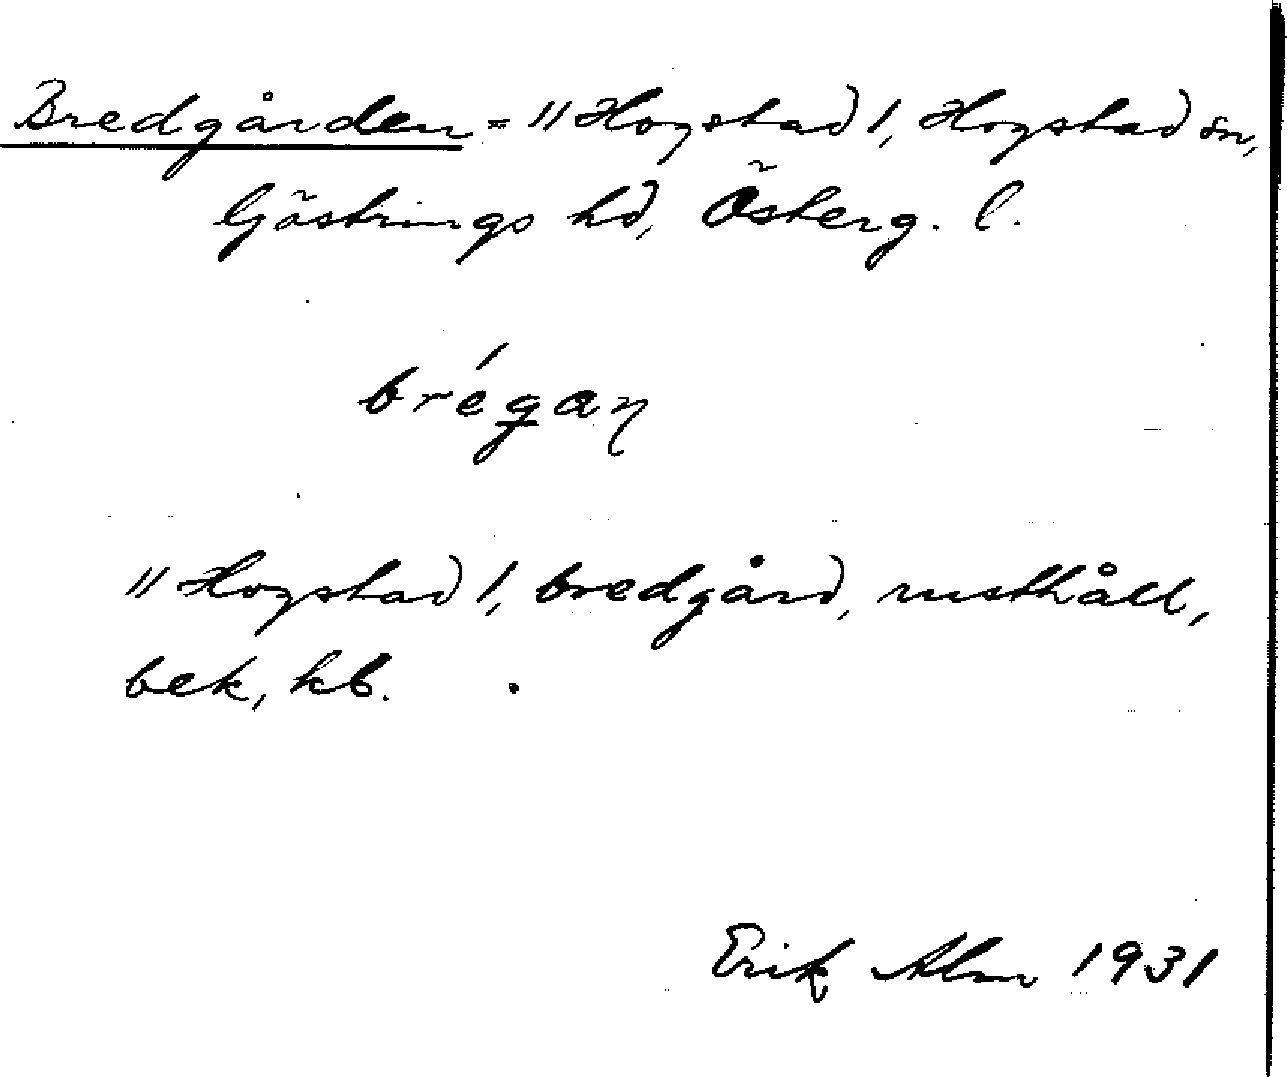 Bredgården = " Hogstad 1, Hogstad sn,
Göstrings hd, Österg. l.
brégaη
" Hogstad 1, bredgård, rusthåll,
bek, kb.
Erik Alm 1931